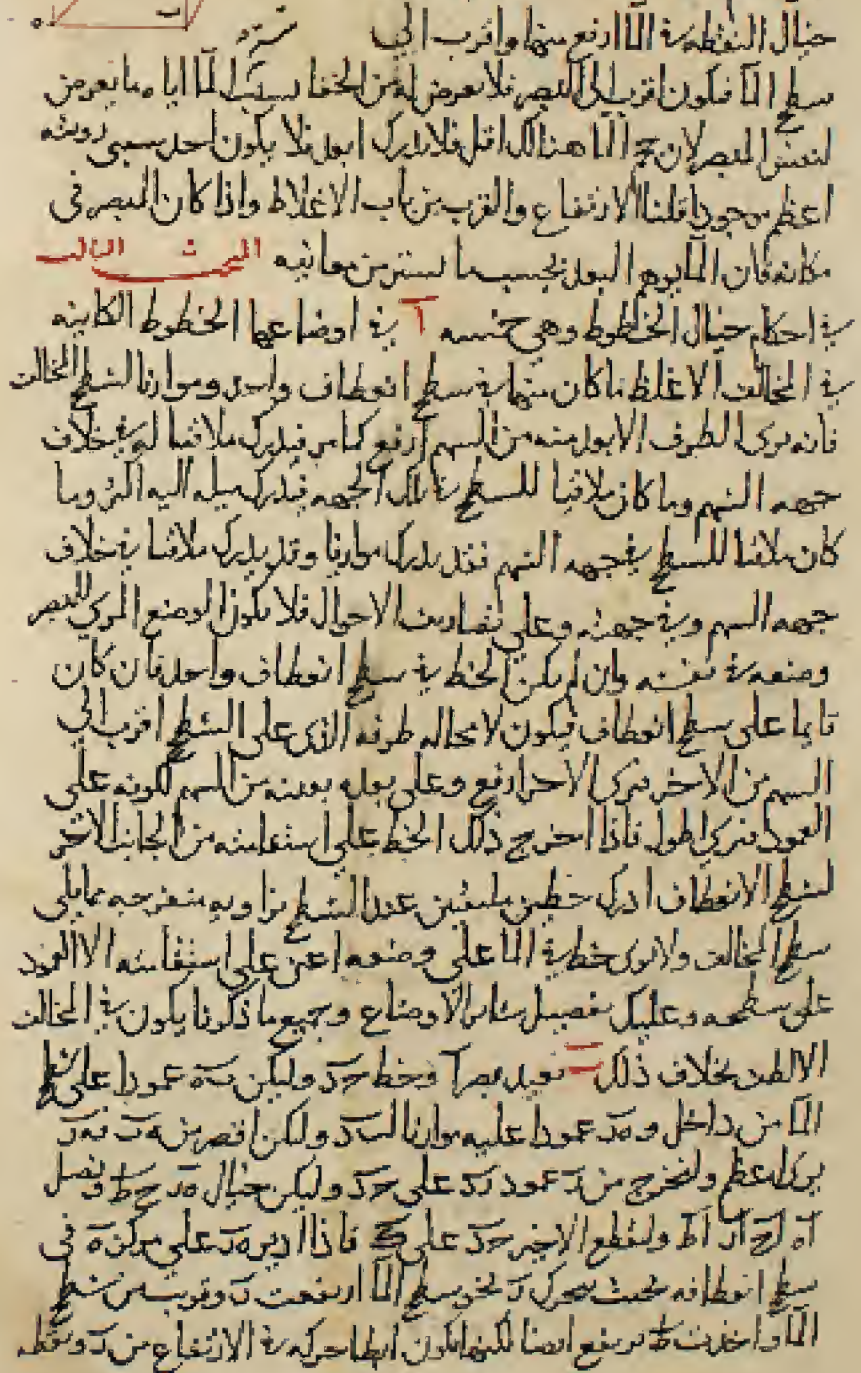 خيال النقطة في الماء ارفع منها واقرب الى
سطح الماء فيكون اقرب الى البصر فلا يعرض له من الخفا بسبب الماء اياه ما يعرض
لنفس المبصر لان الماء هنالك اقل فلا يدرك ابعد فلا يكون احد سببي رويته
اعظم موجودا قلنا الارتفاع والقرب من باب الاغلاط واذا كان المبصر في
مكانه فان الماء يوهم البعد بحسب ما يستتر من معانيه المبحث الثالث
في احكام خيال الخطوط وهي خمسة آ في اوضاعها الخطوط الكاينه
في المخالف الاغلظ ما كان منها في سطح انعطاف واحد وموازيا لسطح المخالف
فانه يرى الطرف الابعد منه من السهم ارفع كما مر فيدرك ملاقيا له في خلاف
جهه السهم وما كان ملاقيا للسطح في تلك الجهه فيدرك ميله اليه اكثر وما
كان ملاقيا للسطح في جهه السهم فقد يدرك موازيا وقد يدرك ملاقيا في خلاف
جهه السهم وفي جهته وعلى تصاريف الاحوال فلا يكون الوضع المركي للبصر
وضعه في نفسه وان لم يكن الخط في سطح انعطاف واحد فان كان
قايما على سطح انعطاف فيكون لا محاله طرفه الذي على السطح اقرب الى
السهم من الاخر فيرى الاخر ارفع وعلى بعده بعينه من السهم لكونه على
العمود فيركي اطول فاذا اخرج ذلك الخط على استقامته من الجانب الاخر
لسطح الانعطاف ادرك خطين ملتقيين عند السطح بزاويه منفرجه مما يلي
سطح المخالف ولا يرى خط في الماء على وضعه اعني على استقامته الا العمود
على سطحه وعليك تفصيل ساير الاوضاع وجميع ما ذكرنا يكون في المخالف
الالطف بخلاف ذلك ب نعيد بصر آ وخط حد وليكن ب ه عمودا على سطح
الماء من داخل و ه د عمودا عليه موازيا ل ب د وليكن اقصر من
يرى اعظم ولنخرج من عمود على حد وليكن خيال ونصل
ولنقطع الاخير حد على فاذا ادير على مركز ه في
سطح انعطافه بحيث يتحرك نحو سطح الماء ارتفعت وقربت من سطح
الماء واخذت ترتفع ايضا لكنها يكون ابطا حركه في الارتفاع من ونقطه